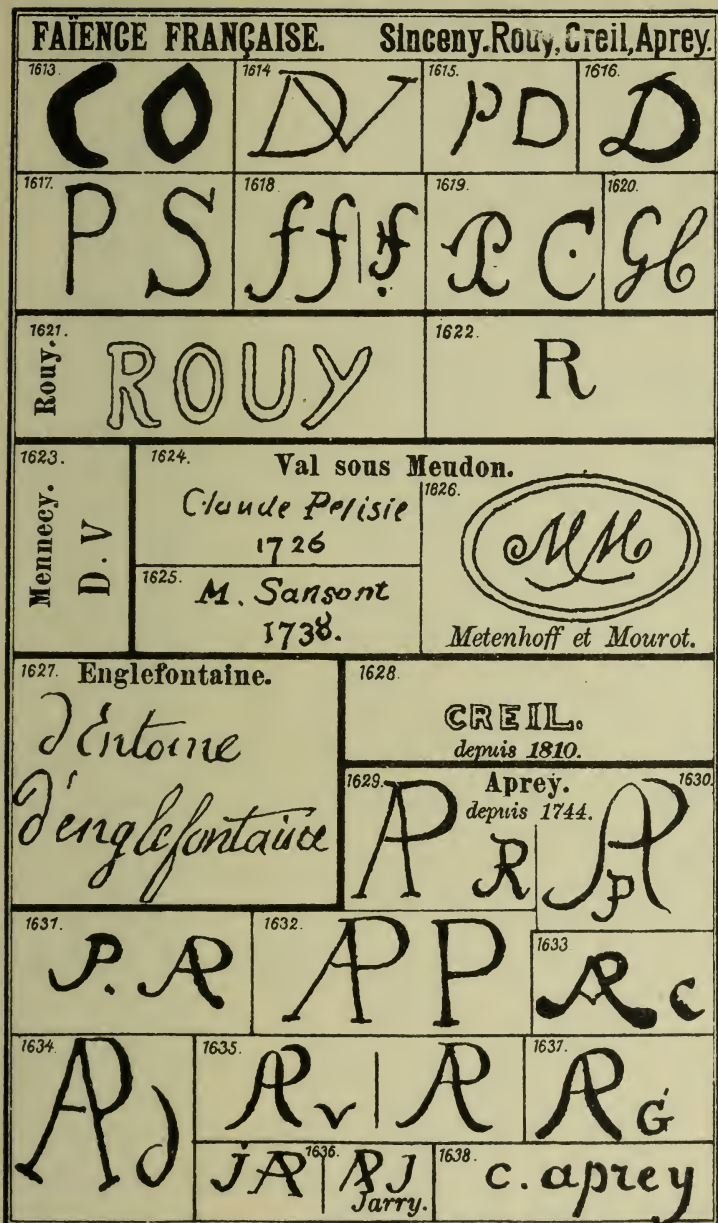 FAÏENCE FRANÇAISE. Sinceny. Rouy, Creil, Aprey.
1613. C O
1614 DV
1615. P D
1616. D
1617. P S
1618 ff f
1619. P C
1620. Gb
1621. Rouy. ROUY
1622. R
1623. Mennecy. D.V
Val sous Meudon.
1624. Claude Pelisie
1726
1625. M. Sansont
1738.
1826. MM
Metenhoff et Mourot.
1627. Englefontaine.
d'Entoine
d'englefontaine
1628
CREIL.
depuis 1810.
Aprey.
depuis 1744.
1629. AP R
1630. AP P
1631. P. AP
1632. AP P
1633 AP c
1634. AP d
1635. AP v AP
1637. AP G
1636. J AP AP J
Jarry.
1638. c. aprey